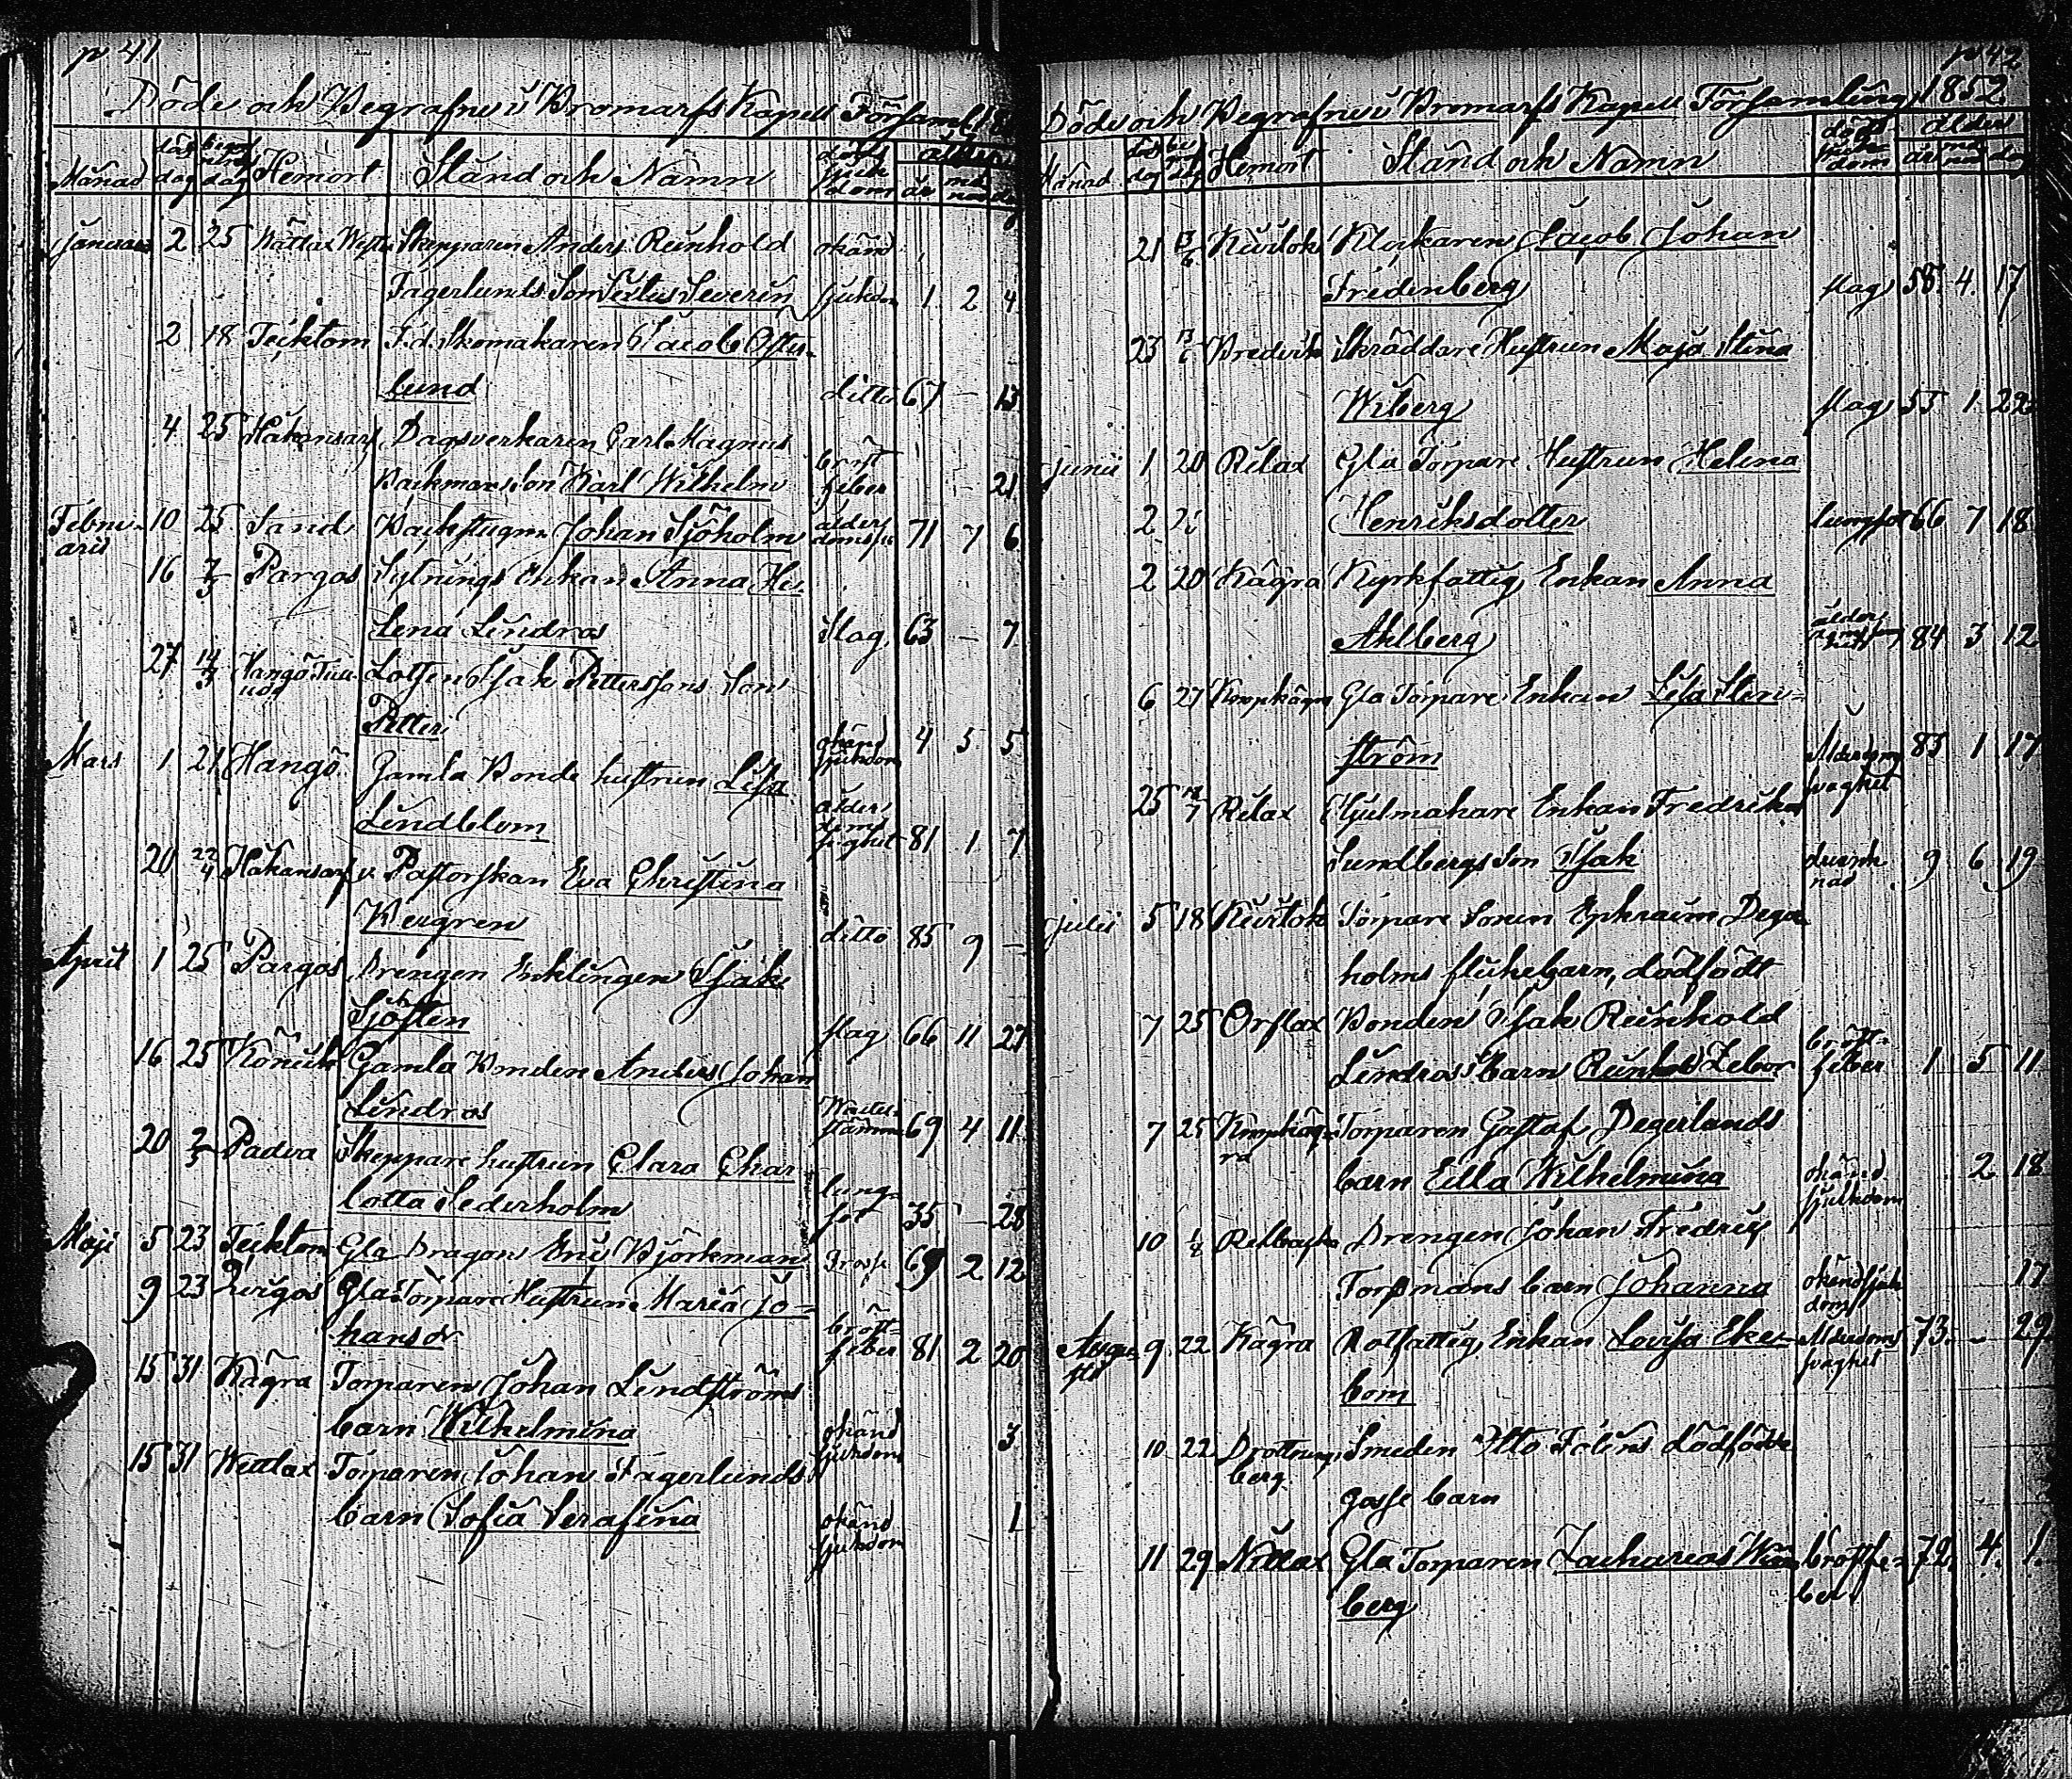 p 41
Döde och Begrafne i Bromarfs Kapell Församl. 18
Månad dag dag Hemort Stånd och Namn sjukdom ålder år
Januari 2 25 Wättlax Skepparen Anders Reinhold okänd
Fagerlunds Son Severin sjukdom 1 2 4
2 18 Teiktom F.d. Skomakaren Jacob Öster-
lund ditto 67 — 13
4 25 Håkansarf Dagsverkaren Carl Magnus
Backmans Son Karl Wilhelm bröst feber 21
Febru- aris 10 25 Sand Backstugm. Johan Sjöholm 71 7 6
16 7/3 Pargas Sytnings Enkan Anna He-
lena Lindros Slag 63 — 7
27 14/3 Hangö Lotsen Isak Petterssons Son
Petter okänd sjukdom 4 5 5
Mars 1 21 Hangö Gamla Bonde hustrun Lisa
Lindblom ålder doms 81 1 7
20 22/4 Håkansarf v. Pastorskan Eva Christina
ditto 85 9 —
April 1 25 Pargas Drengen Enklingen Isak
Sjösten slag 66 11 27
16 25 Gamla Bonden Anders Johan
Lindros 69 4 11
20 2/5 Padva Skeppare hustrun Clara Char-
lotta Sederholm lung- sot 35 — 28
Maji 5 23 Teiktom Gla Dragon Eric Björkman 69 2 12
9 23 Gla Torpare Hustrun Maria Jo-
hansdr bröst- feber 81 2 20
15 31 Kägra Torparen Johan Lindströms
barn Wilhelmina okänd sjukdom 3
15 31 Wettlax Torparen Johan Fagerlunds
barn Sofia Serafina okänd sjukdom 1
p 42
Döde och Begrafne i Bromarfs Kapell Församling 1852
Månad dag dag Hemort Stånd och Namn sjuk dom ålder år må nad dag
21 13/6 Kirklockaren Jacob Johan
Fridenberg slag 58 4 17
23 13/6 Skräddare Hustrun Maja Stina
Wiberg slag 55 1 22
Junii 1 20 Rilax Gla Torpare Hustrun Helena
2 Henriksdotter lungsot 66 7 18
2 20 Kägra Kyrkfattig Enkan Anna
Ahlberg 84 3 12
6 27 Gla Torpare Enkan Lisa
ström Ålderdoms svaghet 83 1 17
25 18/7 Rilax Hjulmakare Enkan Fredrika
Sundbergs Son Isak 9 6 19
Julii 5 18 Torpare Sonen Ephraim Deger-
holms flickebarn, dödfödt
7 25 Orslax Bonden Isak Reinhold
Lindros's barn Reinhold bröst- feber 1 5 11
7 25 Torparen Gustaf Degerlunds
barn Eilla Wilhelmina okänd sjukdom 2 18
10 1/8 Drengen Johan Fredric
Torsmans barn Johanna okänd sjuk dom 17
Augu- sti 9 22 Kägra Rotfattig Enkan Lovisa Eke- Ålderdoms svaghet 73 — 29
bom
10 22 Drottning- berg Smeden Otto Felins dödfödde
gosse barn
11 29 Nittlax Gla Torparen Zacharias Win- bröstfe- ber 72 4 1
berg